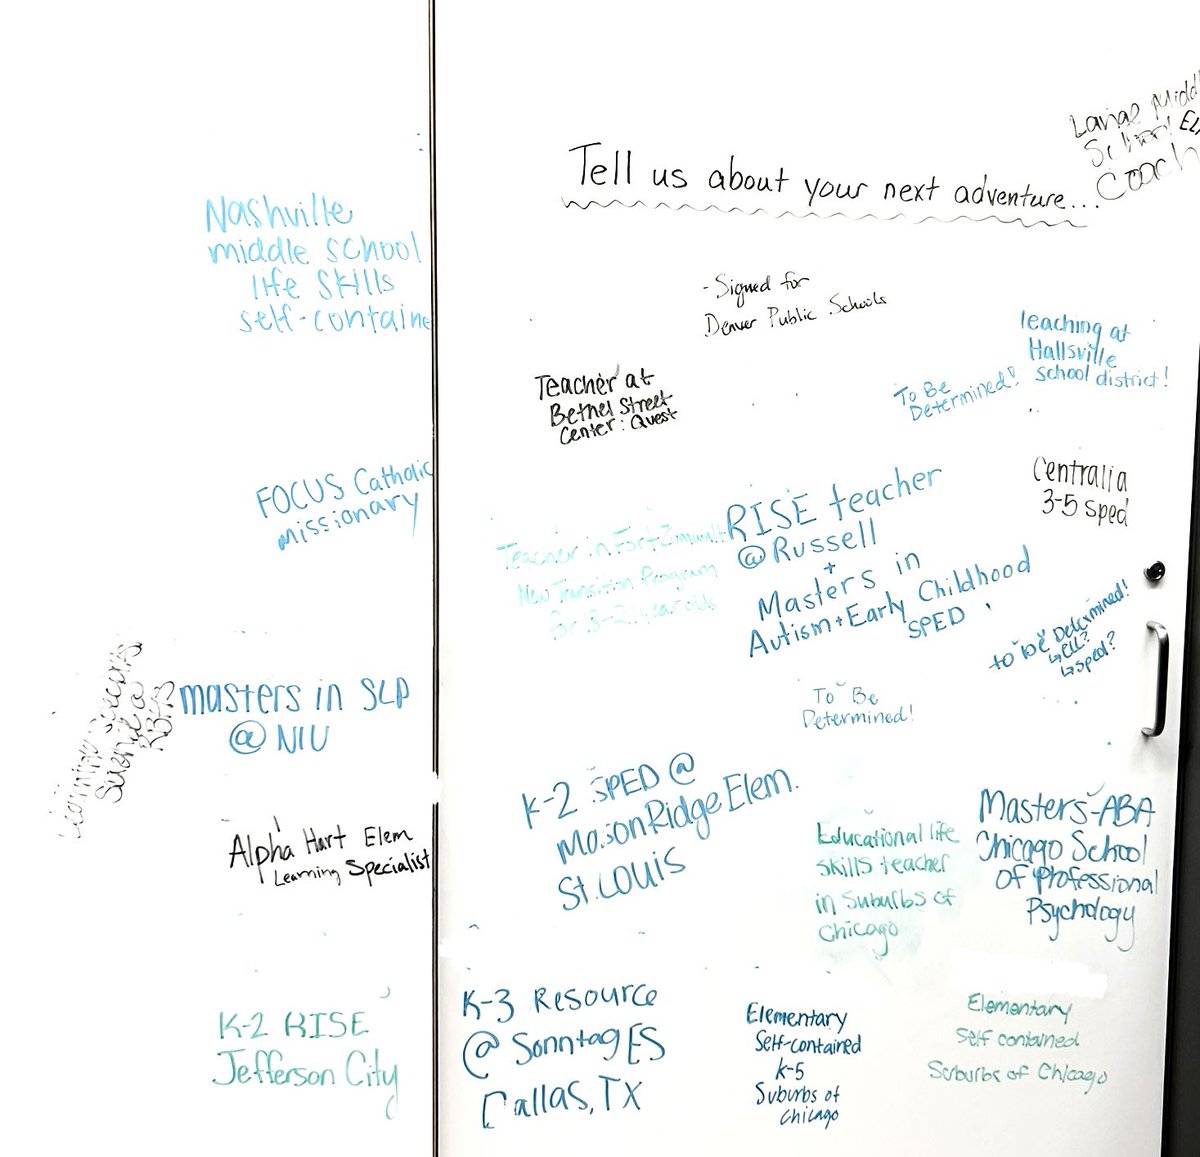 Tell us about your next adventure...
Coach
Nashville
middle school
life skills
self-containe
- Signed for
Denver Public Schools
Teacher at
Bethel Street
Center: Quest
To Be
Determined!
Teaching at
Hallsville
school district!
FOCUS Catholic
missionary
Teacher in Fort Zumwalt
New Transition Program
RISE teacher
@ Russell
+
Masters in
Autism + Early Childhood
SPED
Centralia
3-5 sped
to be Determined!
↳ ELL?
↳ sped?
masters in SLP
@ NIU
To Be
Determined!
Alpha Hart Elem
Learning Specialist
K-2 SPED @
Mason Ridge Elem.
St. Louis
Educational life
skills teacher
in suburbs of
Chicago
Masters-ABA
Chicago School
of Professional
Psychology
K-2 RISE
Jefferson City
K-3 Resource
@ Sonntag ES
Dallas, TX
Elementary
Self-contained
K-5
Suburbs of
Chicago
Elementary
Self contained
Suburbs of Chicago